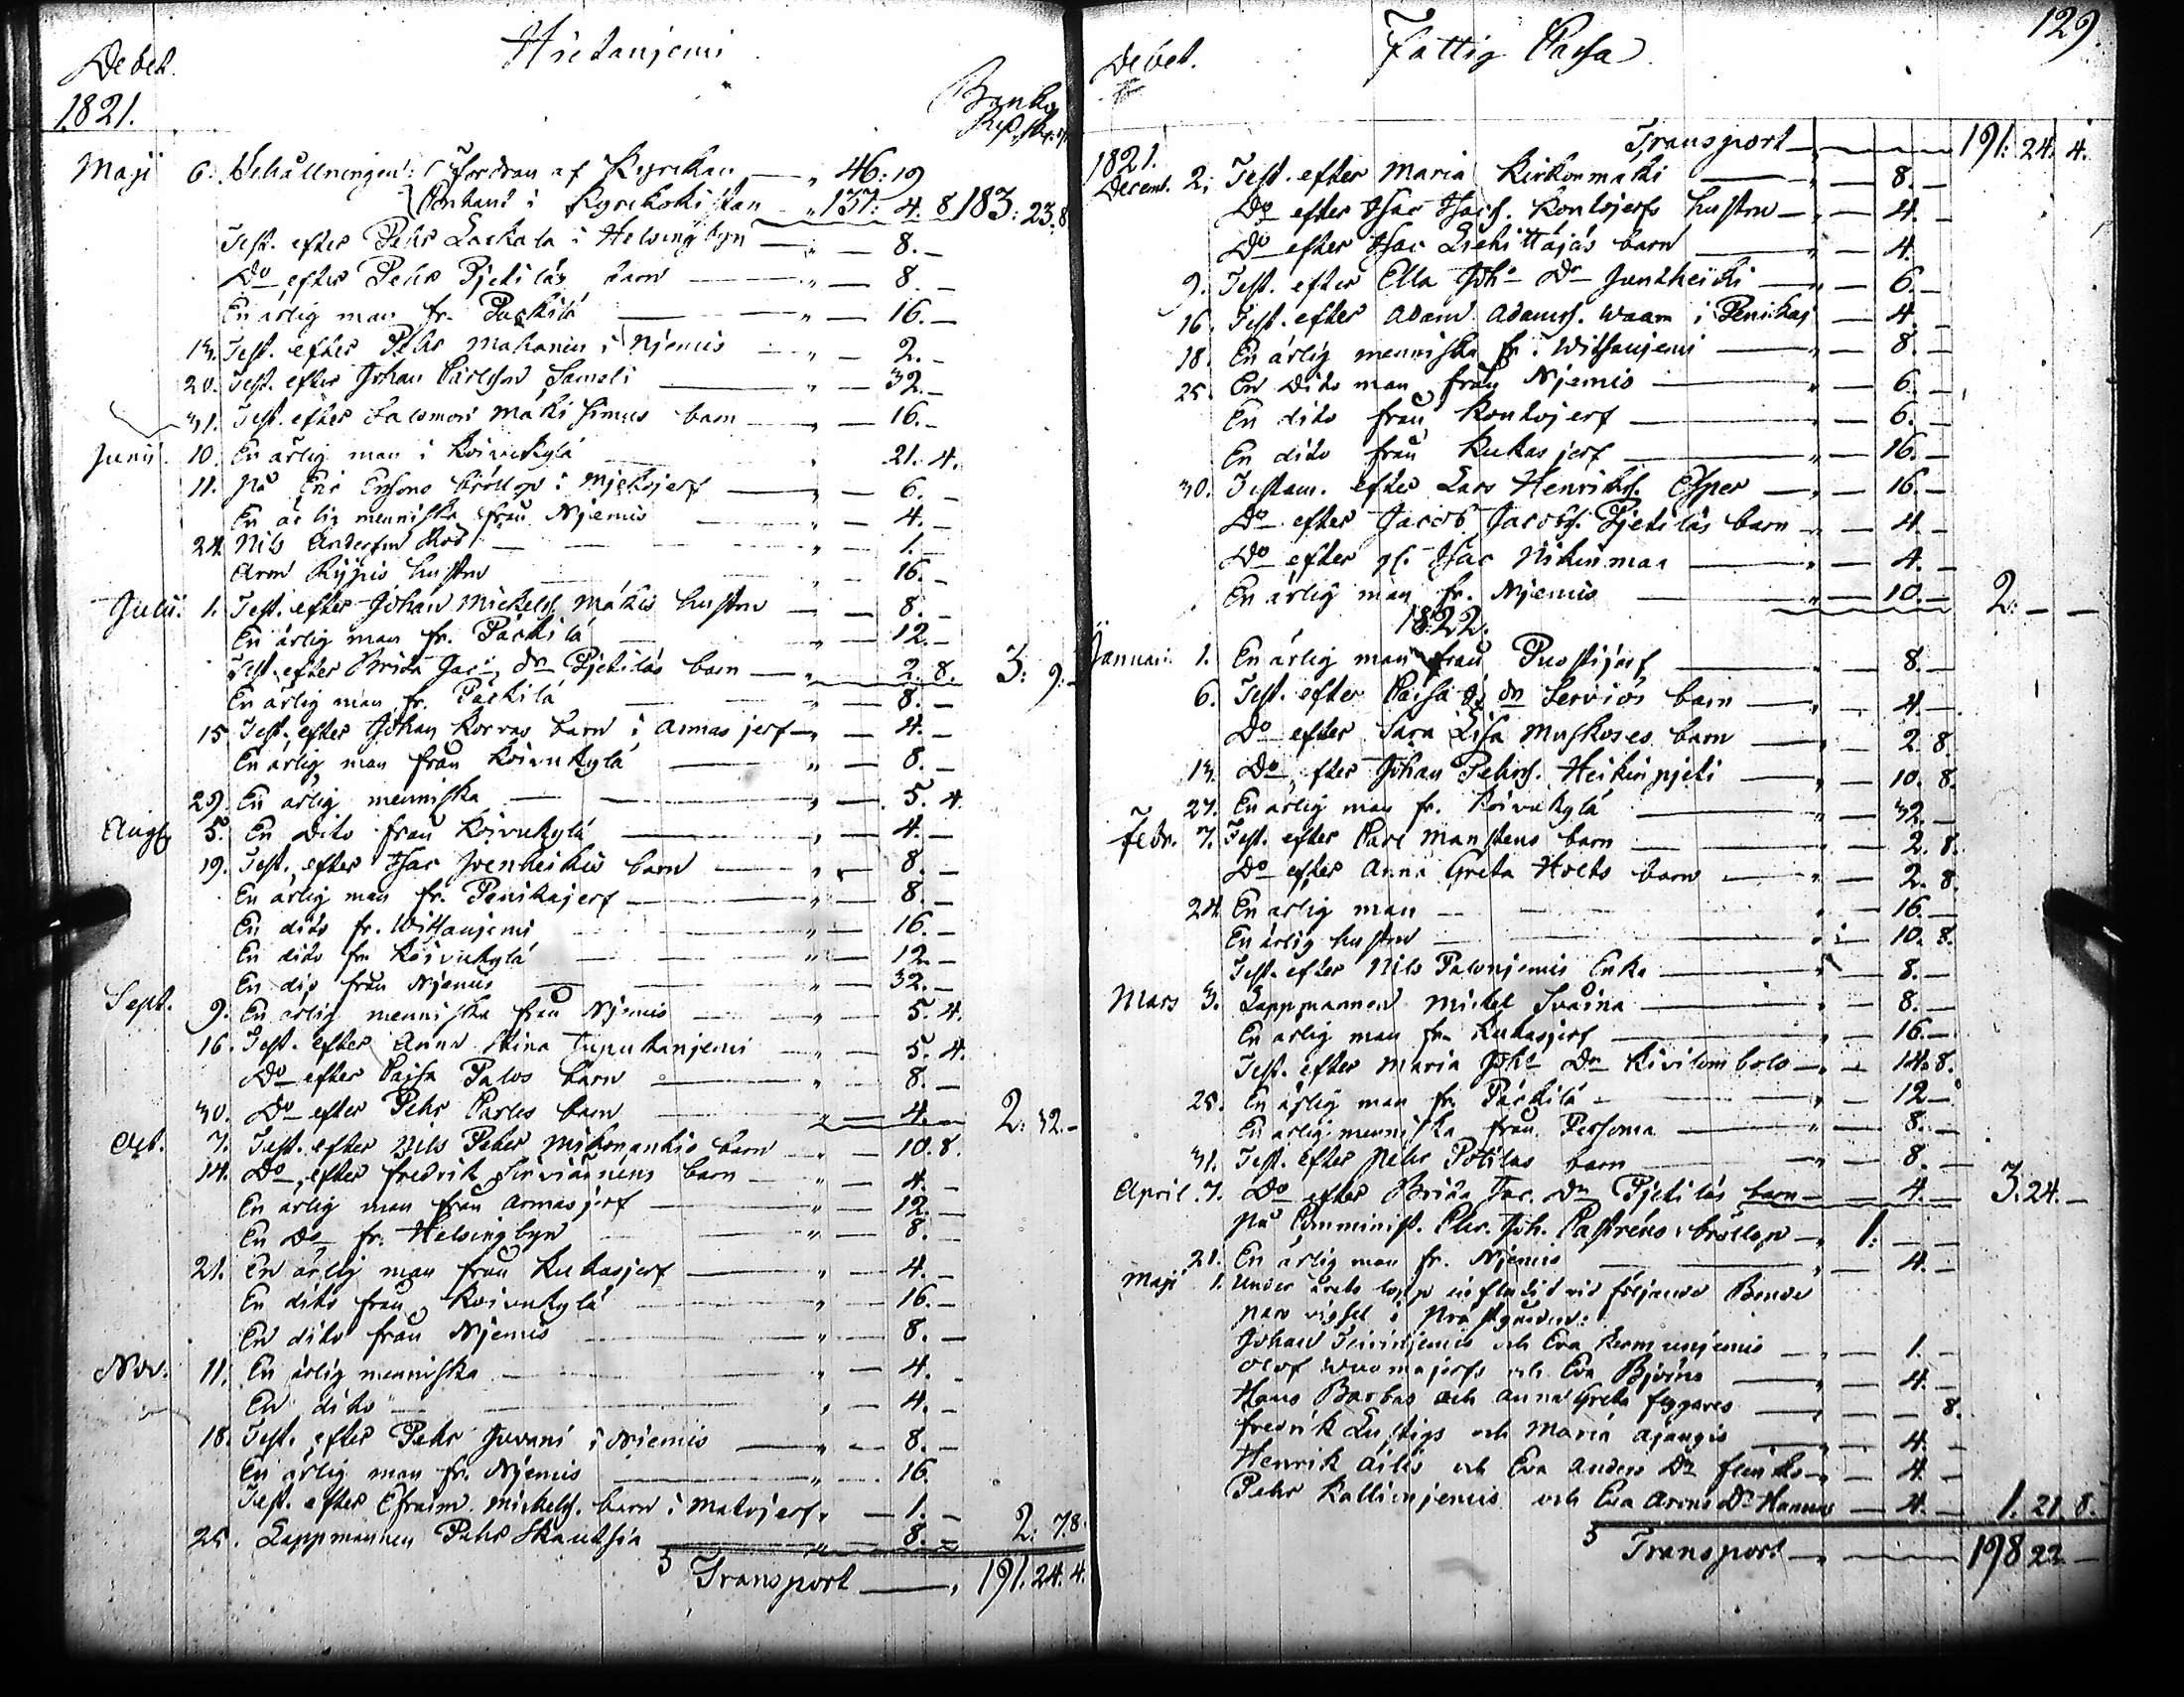 Hietanjemi
Debet.
1821.
Banko
Maji 6. Behållningen: Fordran af Kyrckan — 46:19
Contant i Kyrckokistan — 137: 4. 8 183: 23. 8
Test. efter Pehr Lackala i Helsingbyn — 8. —
Do efter Pehr Pjetiläs barn — 8. —
En ärlig man fr. Päckilä — 16. —
13. Test. efter Pehr Makanien i Njemis — 2. —
20. Test. efter Johan Carlsson Sameli — 32. —
31. Test. efter Salomon Mäki Simus barn — 16. —
Junii. 10. En ärlig man i Koivukylä 21. 4.
11. På Eric Ersons bröllop i Mjekojerf — 6. —
En ärlig menniska från Njemis — 4. —
24. Nils Anderson Röd — 1. —
Aron Rypis hustru 16. —
Julii. 1. Test. efter Johan Mickelss. Mäkis hustru — 8. —
En ärlig man fr. Päckilä — 12. —
Test. efter Brita Jac. dr Pjetiläs barn — 2. 8. 3: 9: —
En ärlig man fr. Päckilä — 8. —
15 Test. efter Johan Korvas barn i Armasjerf — 4. —
En ärlig man från Koivukylä — 8. —
29. En ärlig menniska — 5. 4.
Aug. 5. En Dito från Koivukylä — 4. —
19. Test. efter Isac Ivenheikis barn — 8. —
En ärlig man fr. Penikajerf — 8. —
En dito fr. Witsanjemi — 16. —
En dito fr. Koivukylä — 12. —
En dio från Njemis — 32. —
Sept. 9. En ärlig menniska från Njemis — 5. 4.
16. Test. efter Anna Stina Tupukanjemi — 5. 4.
Do efter Cajsa Palos barn — 8. —
30. Do efter Pehr Parkis barn — 4. — 2: 32. —
Oct. 7. Test. efter Nils Peter Mikonankis barn — 10. 8.
14. Do efter Fredrik Serviäinens barn — 4. —
En ärlig man från Armasjerf — 12. —
En Do fr. Helsingbyn — 8. —
21. En ärlig man från Kukasjerf — 4. —
En dito från Koivukylä — 16. —
En dito från Njemis — 8. —
Nov. 11. En ärlig menniska — 4. —
En dito — 4. —
18. Test. efter Pehr Juvani i Niemis — 8. —
En ärlig man fr. Njemis — 16.
Test. efter Efraim Mickelss. barn i Matojerf — 1. —
25. Lappmannen Pehr Skautsia — 8. — 2: 7.8.
Transport — 191. 24. 4.
129.
Fattig Cassa
Debet.
Transport — 191: 24. 4.
1821.
Decemb. 2. Test. efter Maria Kirkonmäki — 8. —
Do efter Isac Isacs. Kontojerfs hustru — 4. —
Do efter Isac Liehittäjäs barn — 4.
9. Test. efter Ella Joh. Dr Juntheicki — 6. —
16. Test. efter Adam Adamss. Waara i Penikaj — 4. —
18. En ärlig menniska fr. Witsanjemi — 8. —
25. En Dito man från Njemis — 6. —
En dito från Kontojerf — 6. —
En dito från Kukasjerf — 16. —
30. Testam. efter Lars Henrikss. Esper — 16. —
Do efter Jacob Jacobs. Pjetiläs barn — 4. —
Do efter gl. Isac Nikinmaa — 4. —
En ärlig man fr. Njemis — 10. — 2: — —
1822.
Januari 1. En ärlig man från Puostijerf — 8. —
6. Test. efter Cajsa dr Serviös barn — 4. —
Do efter Sara Lisa Muskoses barn — 2. 8.
13. Do efter Johan Pehrss. Heikinpjeti — 10. 8.
27. En ärlig man fr. Koivukylä — 32. —
Febr. 7. Test. efter Carl Manstens barn — 2. 8.
Do efter Anna Greta Holts barn — 2. 8.
24. En ärlig man — 16. —
En ärlig hustru — 10. 8.
Test. efter Nils Palonjemis Enka — 8. —
Mars 3. Lappmannen Mickel Svaina — 8. —
En ärlig man fr. Kukasjerf — 16. —
Test. efter Maria Joh. Dr Kivilombolo — 14. 8.
25. En ärlig man fr. Päckilä — 12 —
En ärlig menniska från Persoma — 8. —
31. Test. efter Pehr Potilas barn — 8. —
April. 7. Do efter Brita Jac. Dr Pjetiläs barn — 4. — 3: 24. —
På Comminist. Chr. Joh. Castréns bröllop — 1: — —
21. En ärlig man fr. Njemis — 4. —
Maji 1. Under årets lopp influtit vid följande Brude
par vigsel i Prästgården:
Johan Teininjemis och Eva Kermunjemis — 1. —
Olof Wuomajerfs och Eva Björns — 4. —
Hans Barbas och Anna Greta Fygares — 8.
Fredrik Lustigs och Maria Ajangis — 4. —
Henrik Ailis och Eva Anders Dr Flinks — 4. —
Pehr Kallinjemis och Eva Arons Dr Hannus — 4. — 1. 21. 8.
Transport — 198 22 —